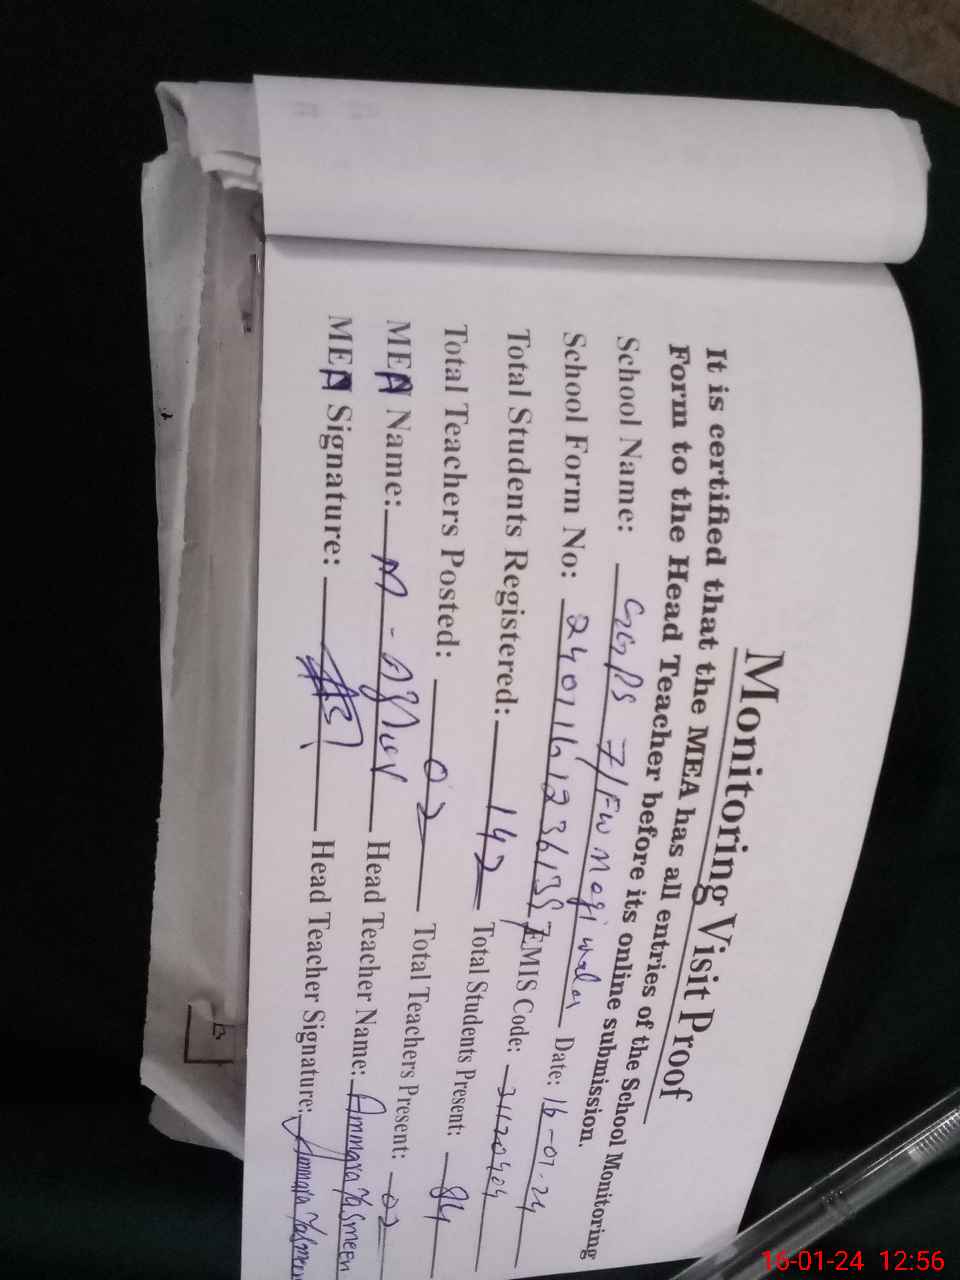 Monitoring Visit Proof
It is certified that the MEA has all entries of the School Monitoring
Form to the Head Teacher before its online submission.
School Name: GGPS 7/FW Date: 16-01-24
School Form No: EMIS Code: 31120404
Total Students Registered: 142 Total Students Present: 84
Total Teachers Posted: 02 Total Teachers Present: 02
MEA Name: M - Head Teacher Name: Ammara Yasmeen
MEA Signature: Head Teacher Signature: Ammara Yasmeen
16-01-24 12:56